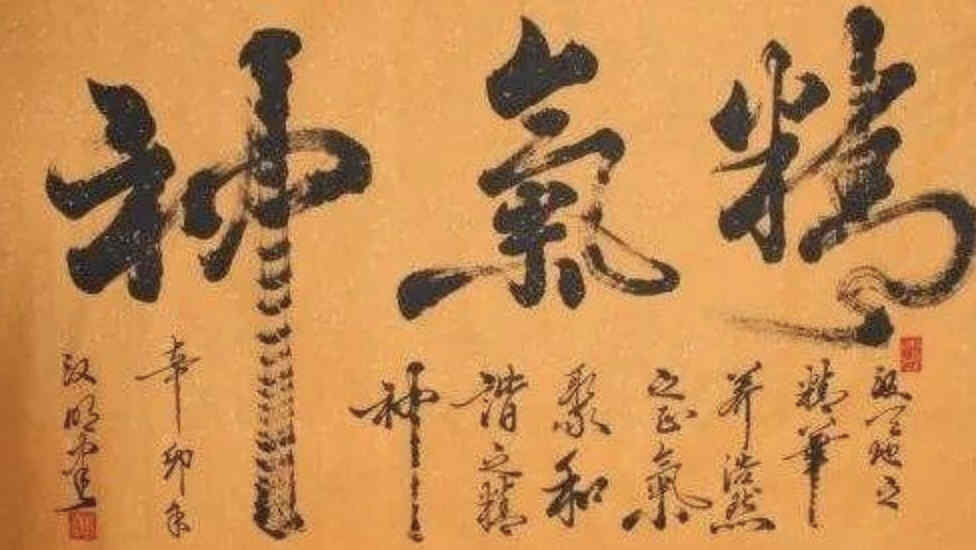 精氣神
天地之
精華
养浩然
之正氣
聚和
諧之精
神
辛卯年
汉明书